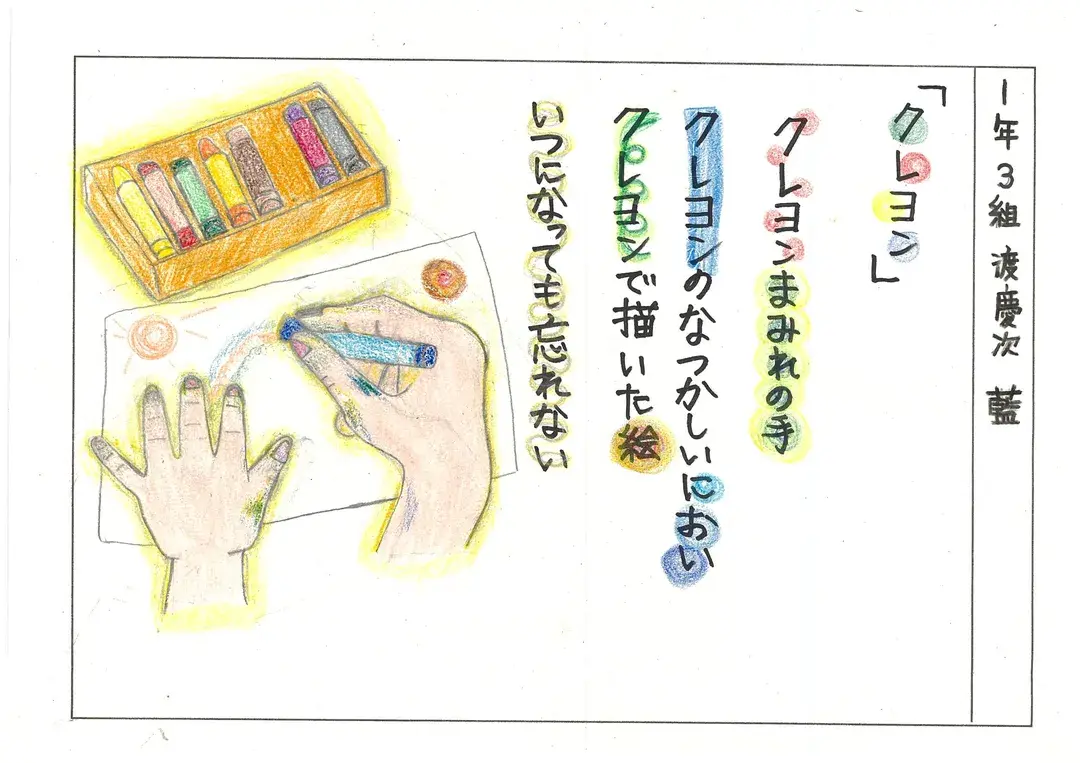 1年3組 渡慶次 藍
「クレヨン」
クレヨンまみれの手
クレヨンのなつかしいにおい
クレヨンで描いた絵
いつになっても忘れない